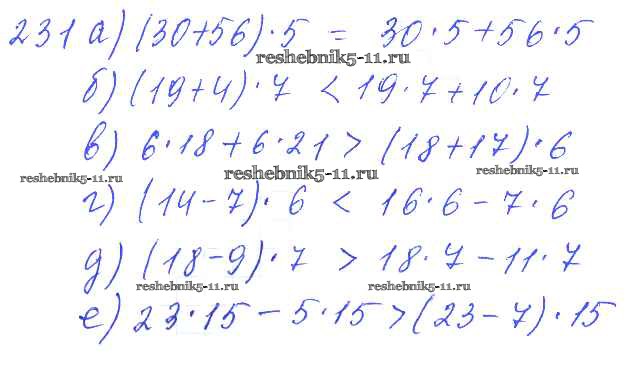 231 а) (30+56)·5 = 30·5+56·5
reshebnik5-11.ru
б) (19+4)·7 < 19·7+10·7
в) 6·18+6·21 > (18+17)·6
reshebnik5-11.ru reshebnik5-11.ru reshebnik5-11.ru
г) (14-7)·6 < 16·6-7·6
д) (18-9)·7 > 18·7-11·7
reshebnik5-11.ru reshebnik5-11.ru
е) 23·15-5·15>(23-7)·15